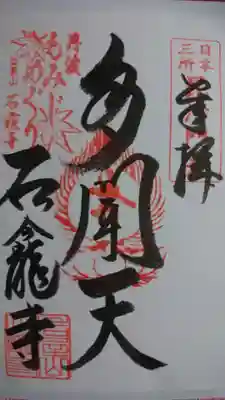 日本
三所
奉拝
多聞天
丹波
もみじ
めぐり
石龕寺
石龕寺